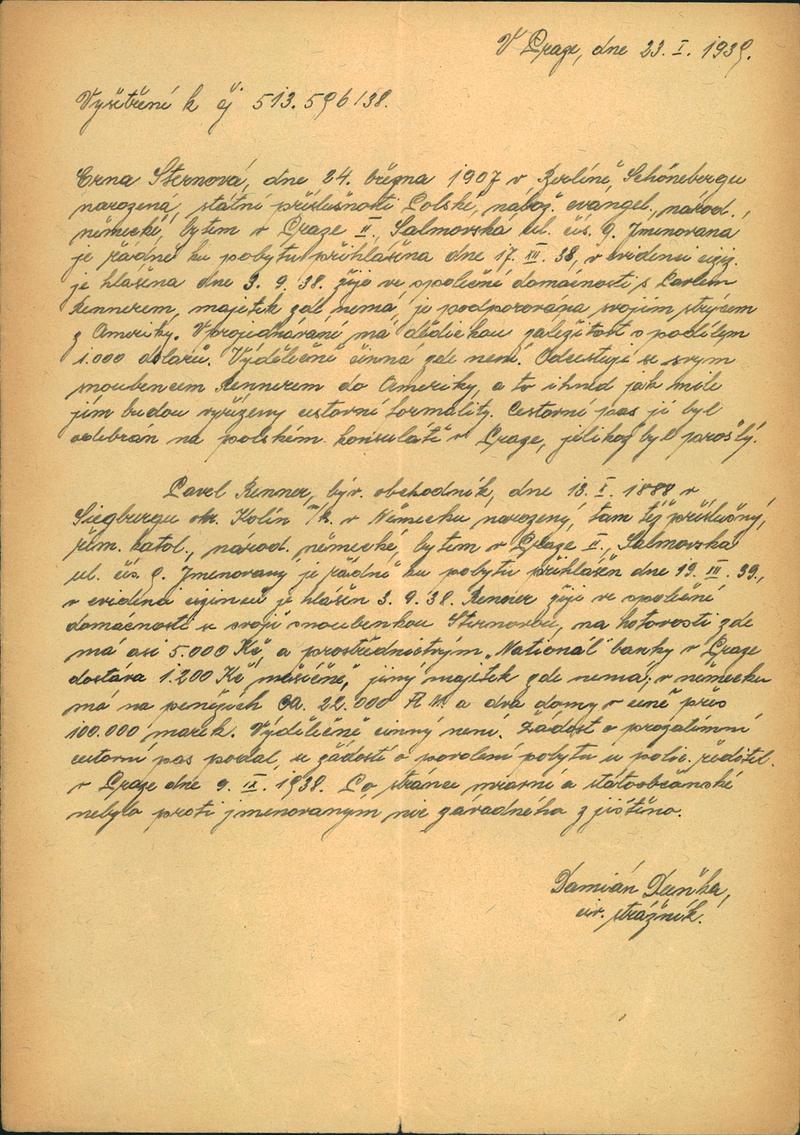 V Praze, dne 23. I. 1939.
Vyšetření k čj 513.596/38.
Erna Sternová, dne 24. března 1907 v Berlíně, Schönebergu
narozená, státní příslušnosti Polské, nábož. evangel., národ.
německé, bytem v Praze II., Salmovská ul. čís. 9. Jmenovaná
je řádně ku pobytu přihlášena dne 17. XII. 38, v evidenci ciziz.
je hlášena dne 3. 9. 38. žije ve společné domácnosti s Pavlem
Rennerem, majetek zde nemá, je podporována svojím strýcem
z Ameriky. V projednávání má dědickou záležitost s podílem
1.000 dolarů. Výdělečně činná zde není. Odcestuje se svým
snoubencem Rennerem do Ameriky, a to ihned jak mile
jim budou vyřízeny cestovní formality. Cestovní pas jí byl
odebrán na polském konsulátě v Praze, jelikož byl prošlý.
Pavel Renner, býv. obchodník, dne 13. I. 1888 v
Siegbergu okr. Kolín n/R. v Německu narozený, tam též příslušný,
řím. katol., národ. německé, bytem v Praze II., Salmovská
ul. čís. 9. Jmenovaný je řádně ku pobytu přihlášen dne 19. III. 39.,
v evidenci cizinců je hlášen 3. 9. 38. Renner žije ve společné
domácnosti se svojí snoubenkou Sternovou, na hotovosti zde
má asi 5.000 Kč, a prostřednictvým „Nationál" banky v Praze
dostává 1.200 Kč měsíčně, jiný majetek zde nemá; v německu
má na penězích ca. 22.000 R M. a dva domy v ceně přes
100.000 marek. Výdělečně činný není. Žádost o prozatimní
cestovní pas podal, se žádostí o povolení pobytu u polic. ředitel.
v Praze dne 9. IX. 1938. Po stránce mravní a státoobčanské
nebylo proti jmenovaným nic závadného zjištěno.
Damián
civ. strážník.